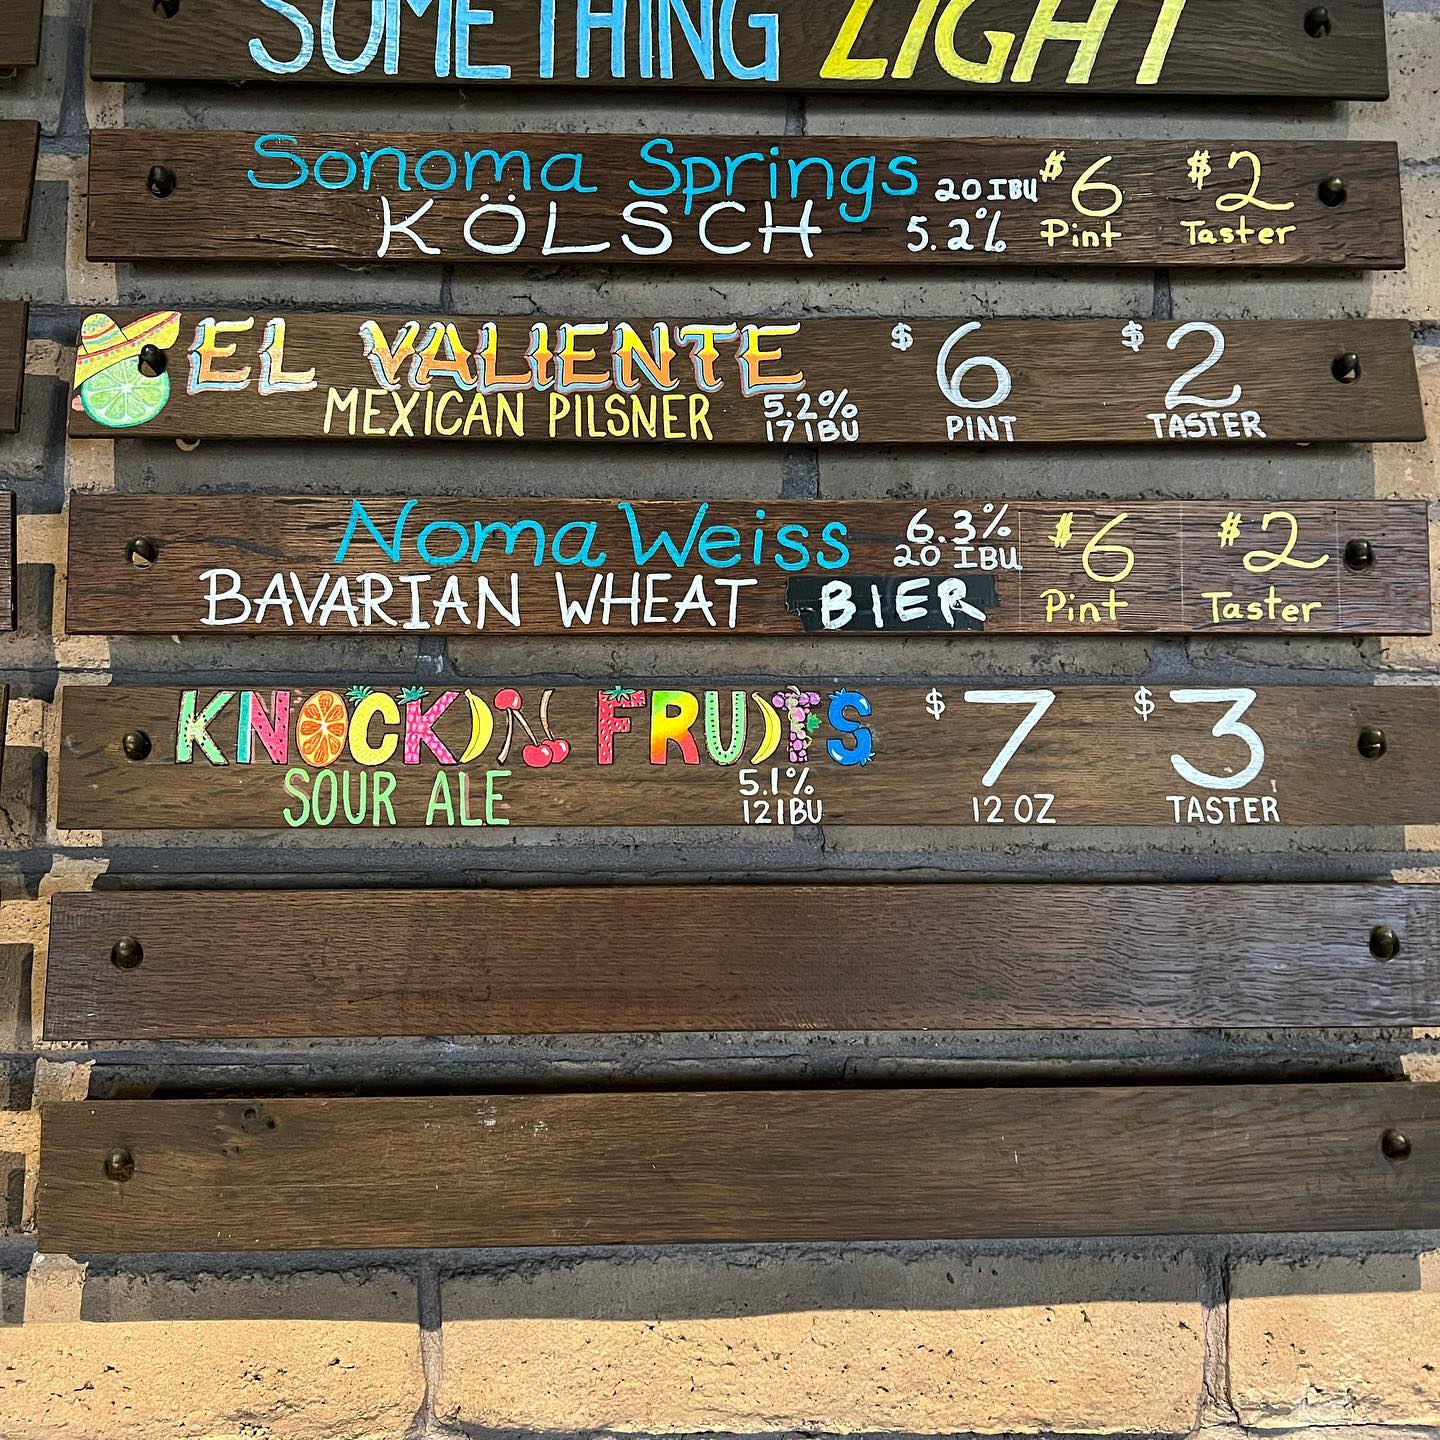 SOMETHING LIGHT
Sonoma Springs 20 IBU $6 $2
KÖLSCH 5.2% Pint Taster
EL VALIENTE $6 $2
MEXICAN PILSNER 5.2% PINT TASTER
17 IBU
Noma Weiss 6.3% $6 $2
20 IBU
BAVARIAN WHEAT BIER Pint Taster
KNOCKIN FRUITS $7 $3
SOUR ALE 5.1%
12 IBU 12 OZ TASTER